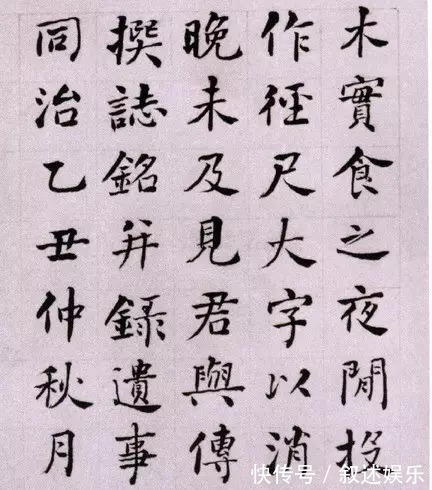 木實食之夜閒投
作徑尺大字以消
晚未及見君與傳
撰誌銘并錄遺事
同治乙丑仲秋月
快传号 / 叙述娱乐